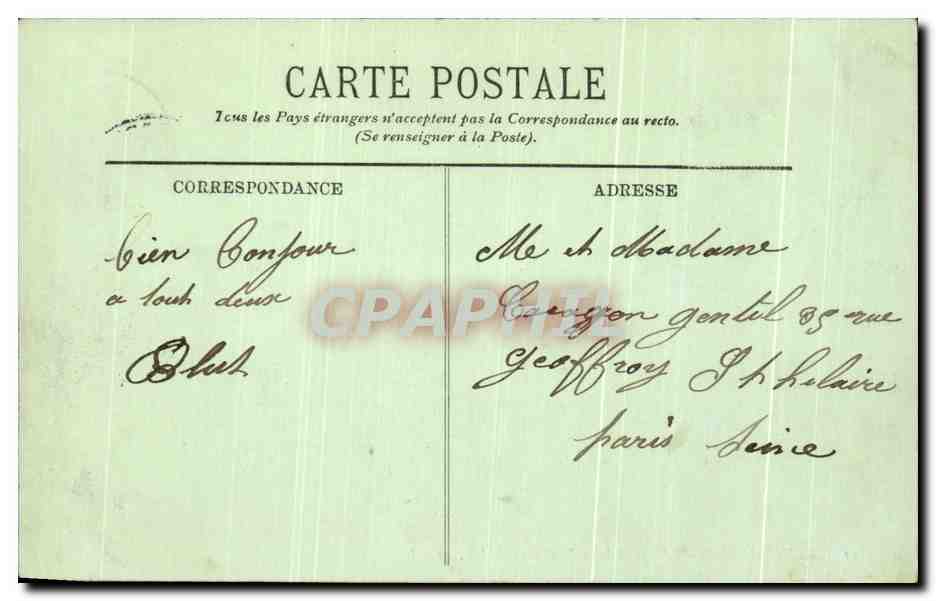 CARTE POSTALE
Tous les Pays étrangers n'acceptent pas la Correspondance au recto.
(Se renseigner à la Poste).
CORRESPONDANCE
bien bonjour
a tout deux
ADRESSE
Me et Madame
gentil 35 rue
geoffroy St hilaire
paris seine
CPAPHIL